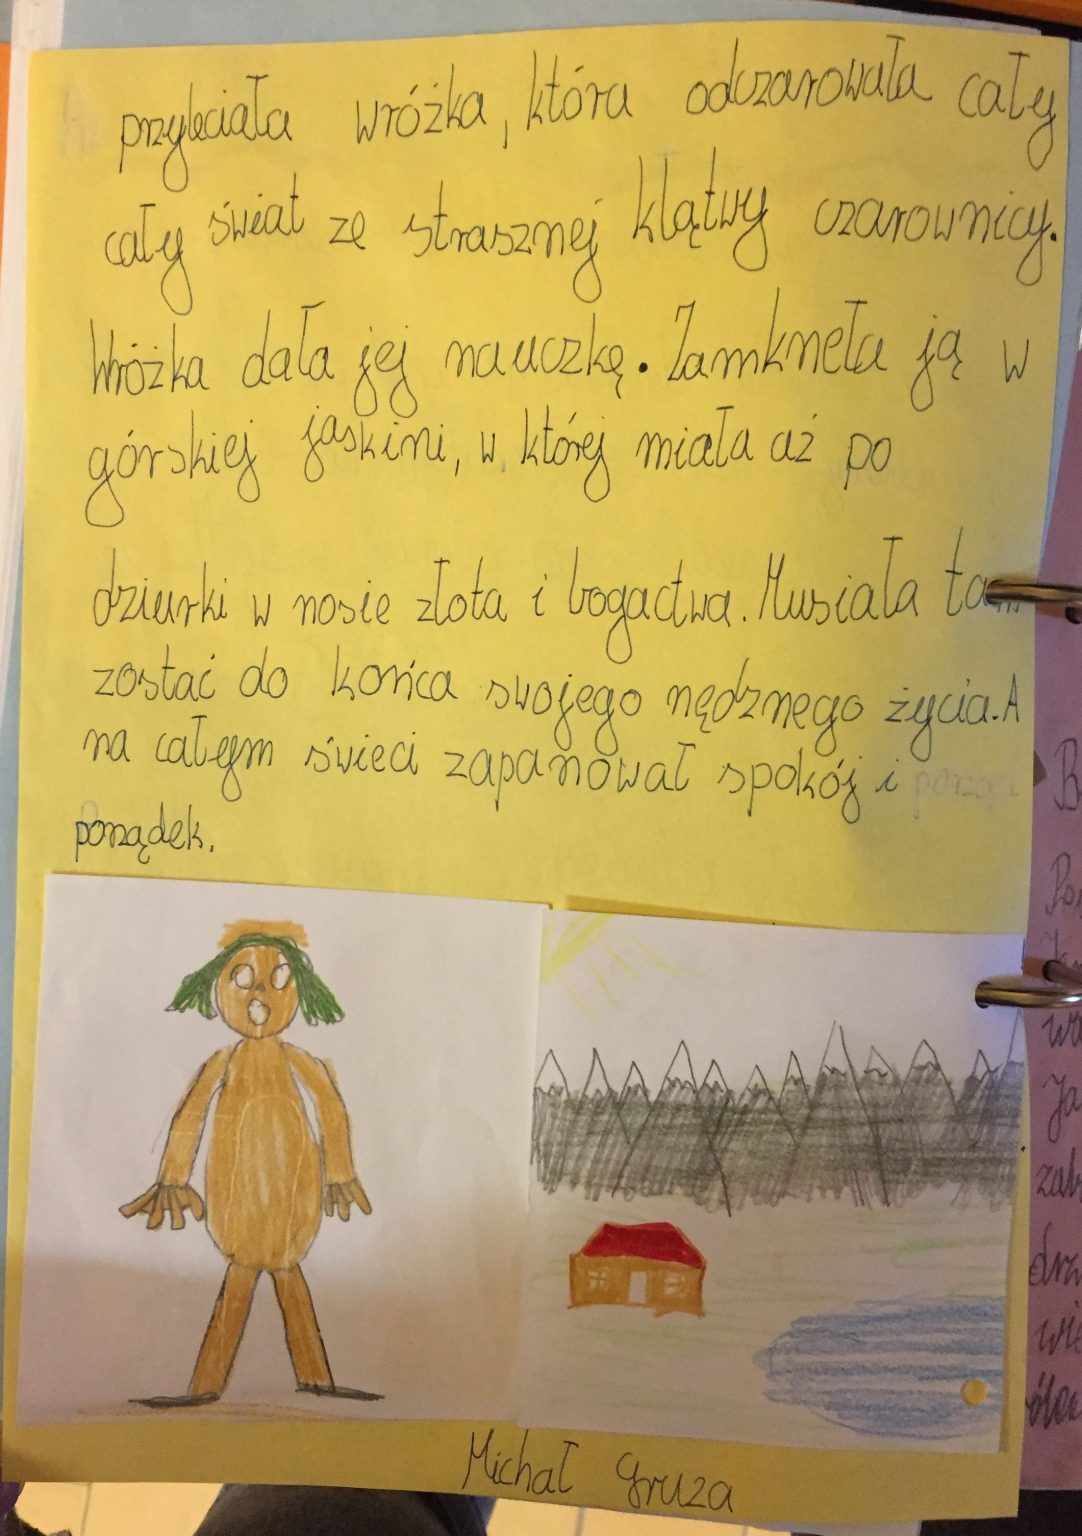 przyleciała wróżka, która odczarowała cały
cały świat ze strasznej klątwy czarownicy.
Wróżka dała jej nauczkę. Zamkneła ją w
górskiej jaskini, w której miała aż po
dziurki w nosie złota i bogactwa. Musiała tam
zostać do końca swojego nędznego życia. A
na całym świeci zapanował spokój i
porządek.
Michał Gruza